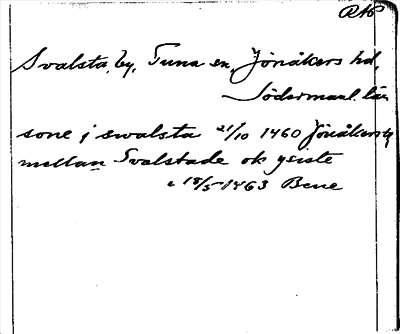 RAP
Svalsta, by, Tuna sn, Jönåkers hd,
Södermanl. län
sone j swalsta 21/10 1460 Jönåkers
mellan Svalstade ok ysiste
c 18/5 1463 Bene